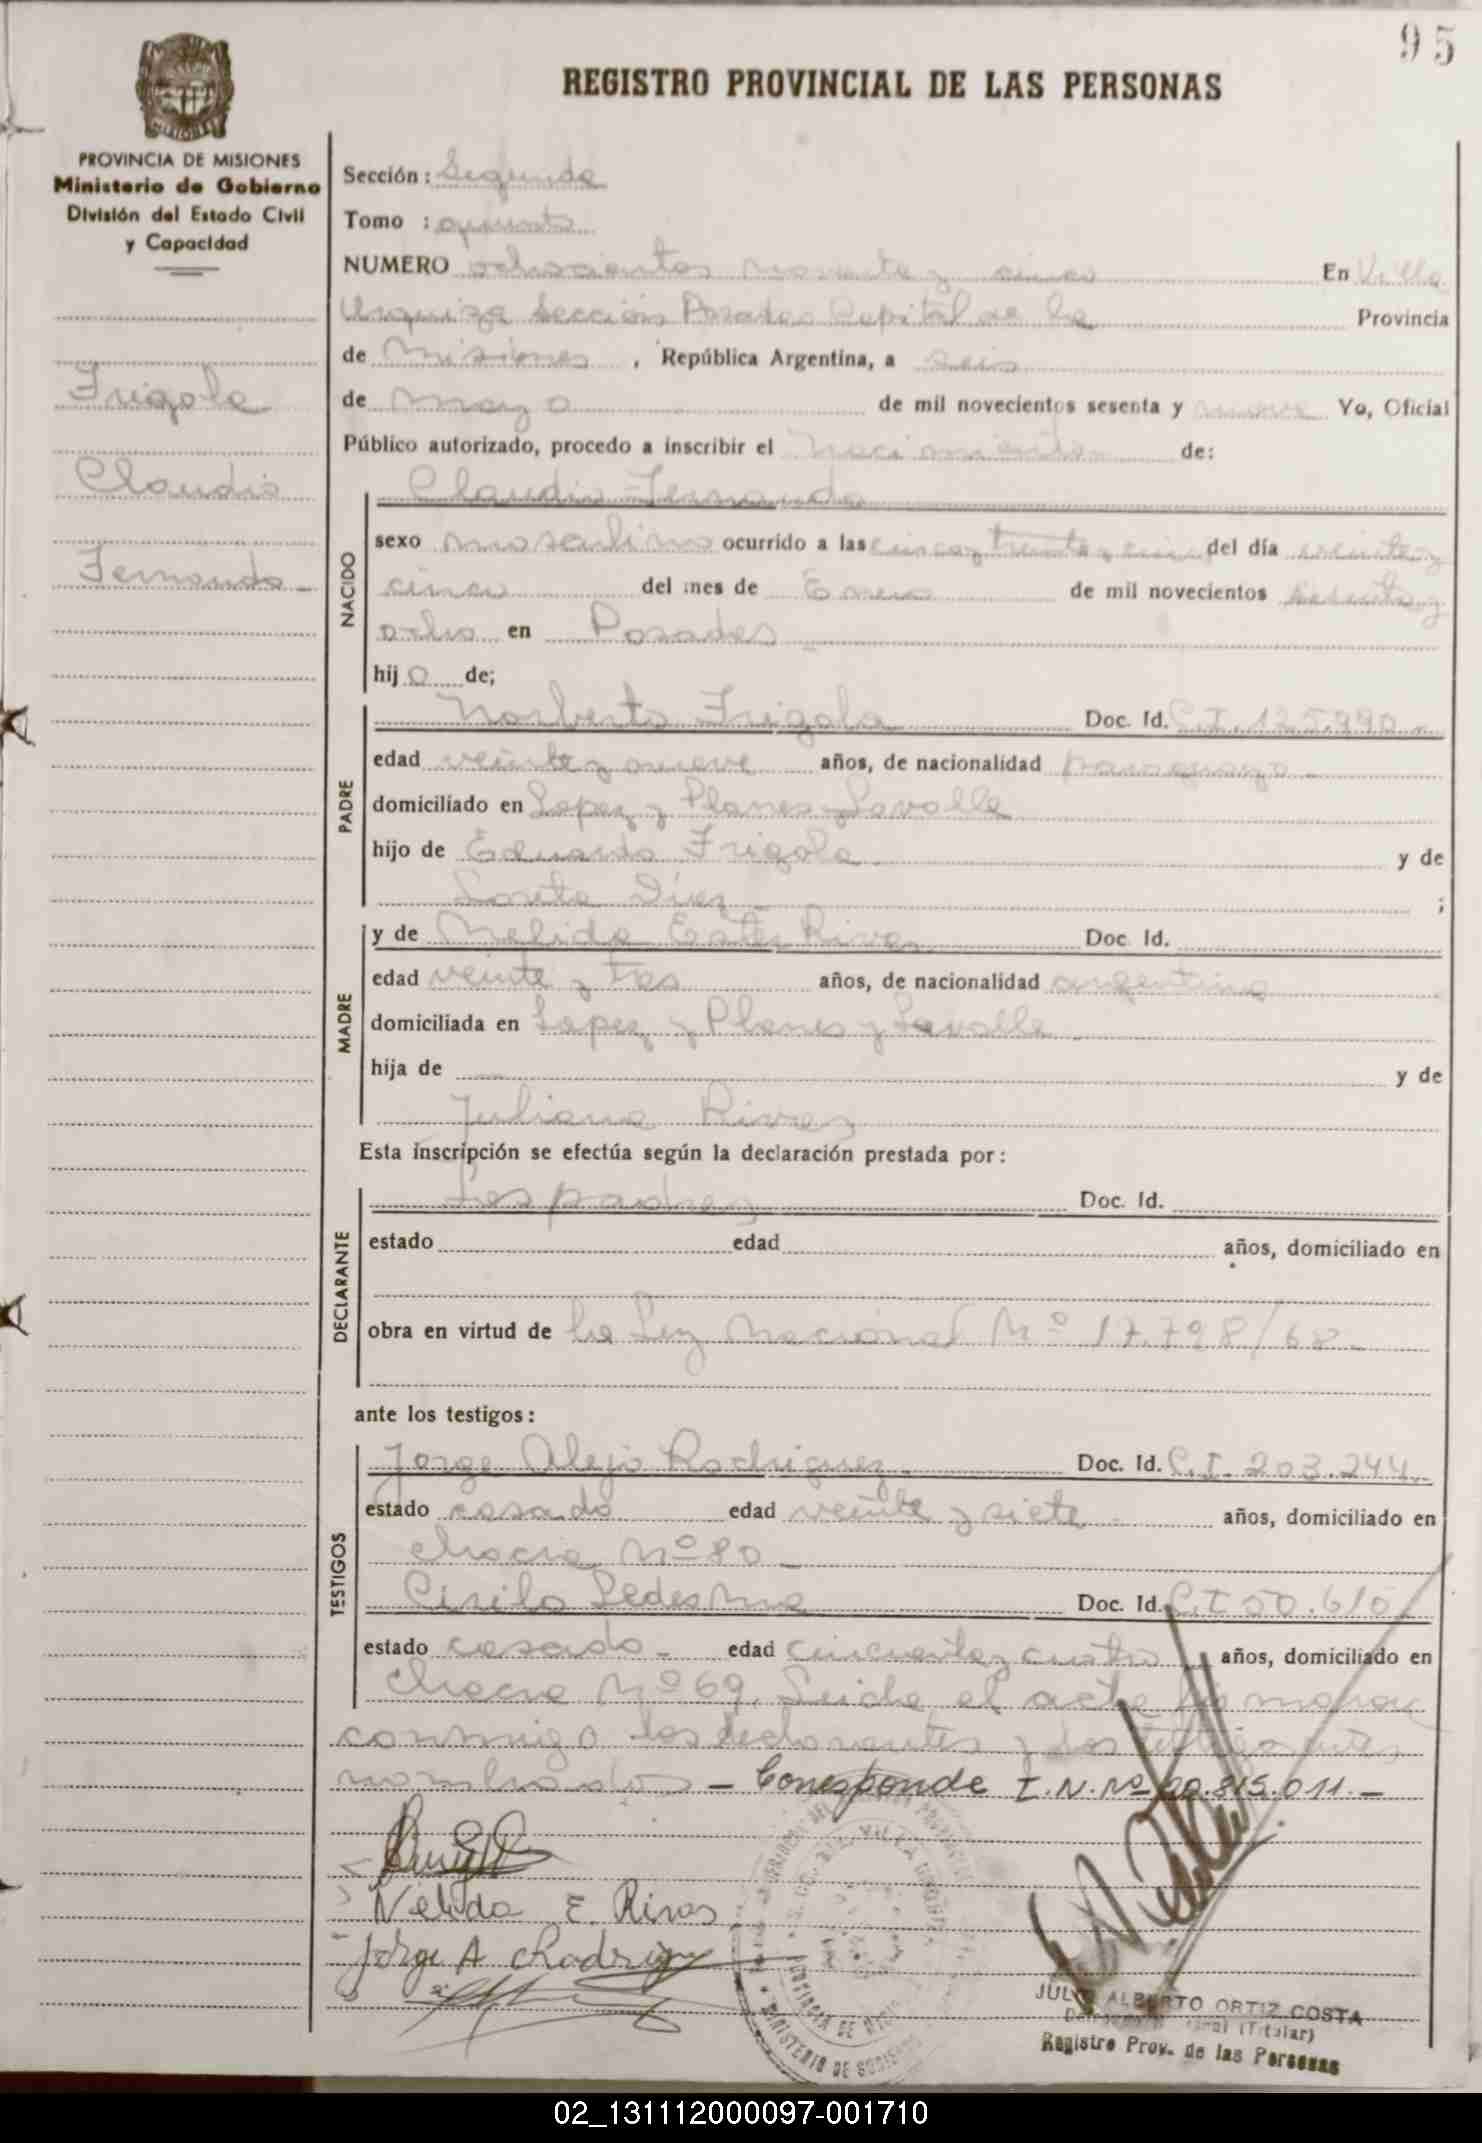 95
REGISTRO PROVINCIAL DE LAS PERSONAS
PROVINCIA DE MISIONES
Ministerio de Gobierno
División del Estado Civil
y Capacidad
Frigola
Claudio
Fernando -
Sección: Segunda
Tomo : quinto
NUMERO ochocientos noventa y cinco En Villa
Urquiza Sección Posadas Capital de la Provincia
de Misiones, República Argentina, a seis
de de mil novecientos sesenta y nueve Yo, Oficial
Público autorizado, procedo a inscribir el nacimiento de:
NACIDO
Claudio Fernando
sexo masculino ocurrido a las cinco y treinta y cinco del día veinte y
cinco del mes de Enero de mil novecientos sesenta y
ocho en Posadas
hijo de;
PADRE
Norberto Frigola Doc. Id. C.I. 125.990.-
edad veinte y nueve años, de nacionalidad paraguayo -
domiciliado en Lopez y Planes y Lavalle
hijo de Eduardo Frigola y de
;
MADRE
y de Nelida Ester Rivas Doc. Id.
edad veinte y tres años, de nacionalidad argentina
domiciliada en Lopez y Planes y Lavalle
hija de — y de
Juliana Rivas
Esta inscripción se efectúa según la declaración prestada por:
DECLARANTE
Los padres Doc. Id.
estado edad años, domiciliado en
obra en virtud de la Ley Nacional Nº 17.728/68-
ante los testigos:
TESTIGOS
Jorge Alejo Rodriguez Doc. Id. C.I. 203.244.
estado casado edad veinte y siete años, domiciliado en
chacra Nº 80 -
Cirilo Ledesma Doc. Id. C.I. 50.610
estado casado - edad cincuenta y cuatro años, domiciliado en
chacra Nº 69. Leida el acta firman
conmigo los declarantes y los testigos antes
nombrados - Corresponde I.N.Nº 20.815.011.-
Nélida E. Rivas
Jorge A Rodriguez
PROVINCIA DE MISIONES
MINISTERIO DE GOBIERNO
JULIO ALBERTO ORTIZ COSTA
(Titular)
Registro Prov. de las Personas
02_131112000097-001710